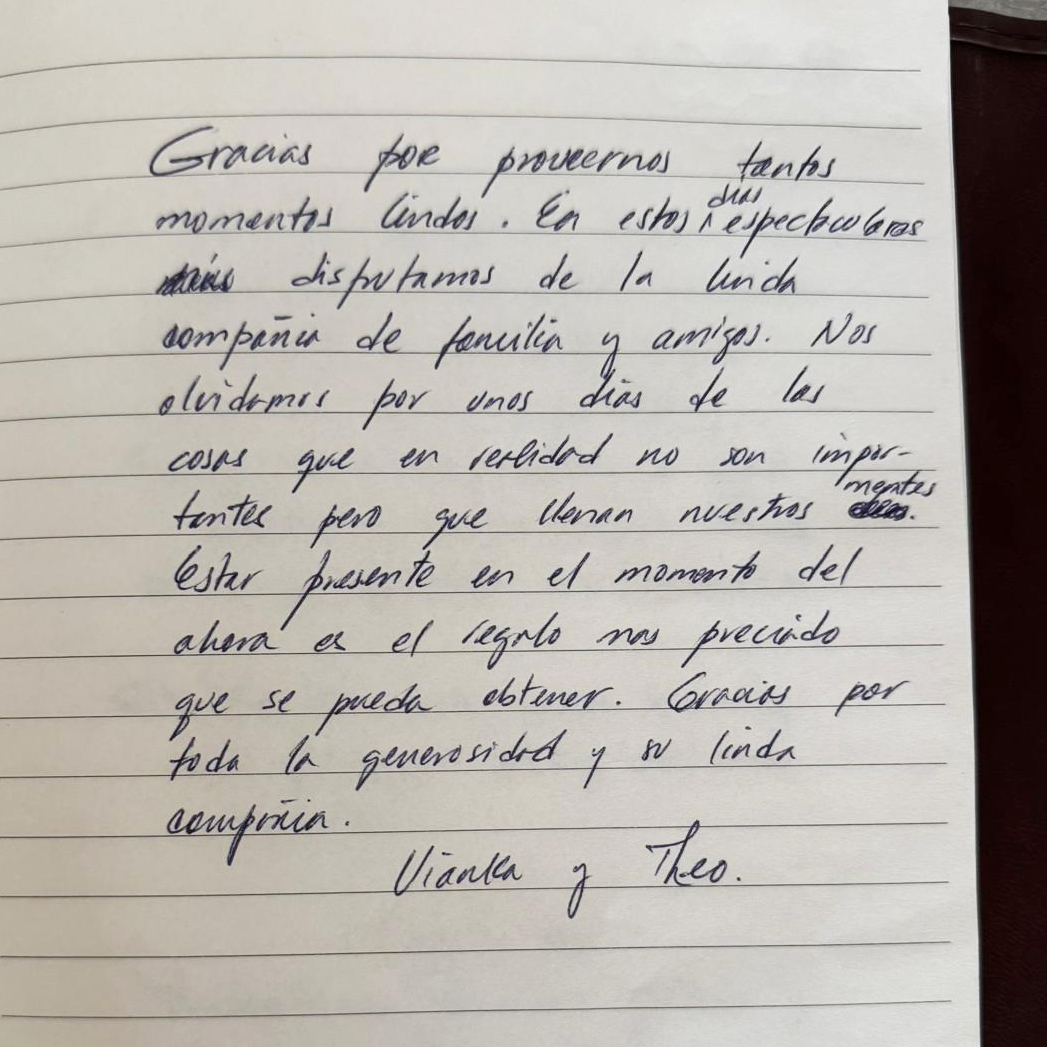 Gracias por proveernos tantos
momentos lindos. En estos días espectaculares
disfrutamos de la linda
compañia de familia y amigos. Nos
olvidamos por unos días de las
cosas que en realidad no son impor-
tantes pero que llenan nuestros mentes.
Estar presente en el momento del
ahora es el regalo mas preciado
que se pueda obtener. Gracias por
toda la generosidad y su linda
compañia.
Vianka y Theo.